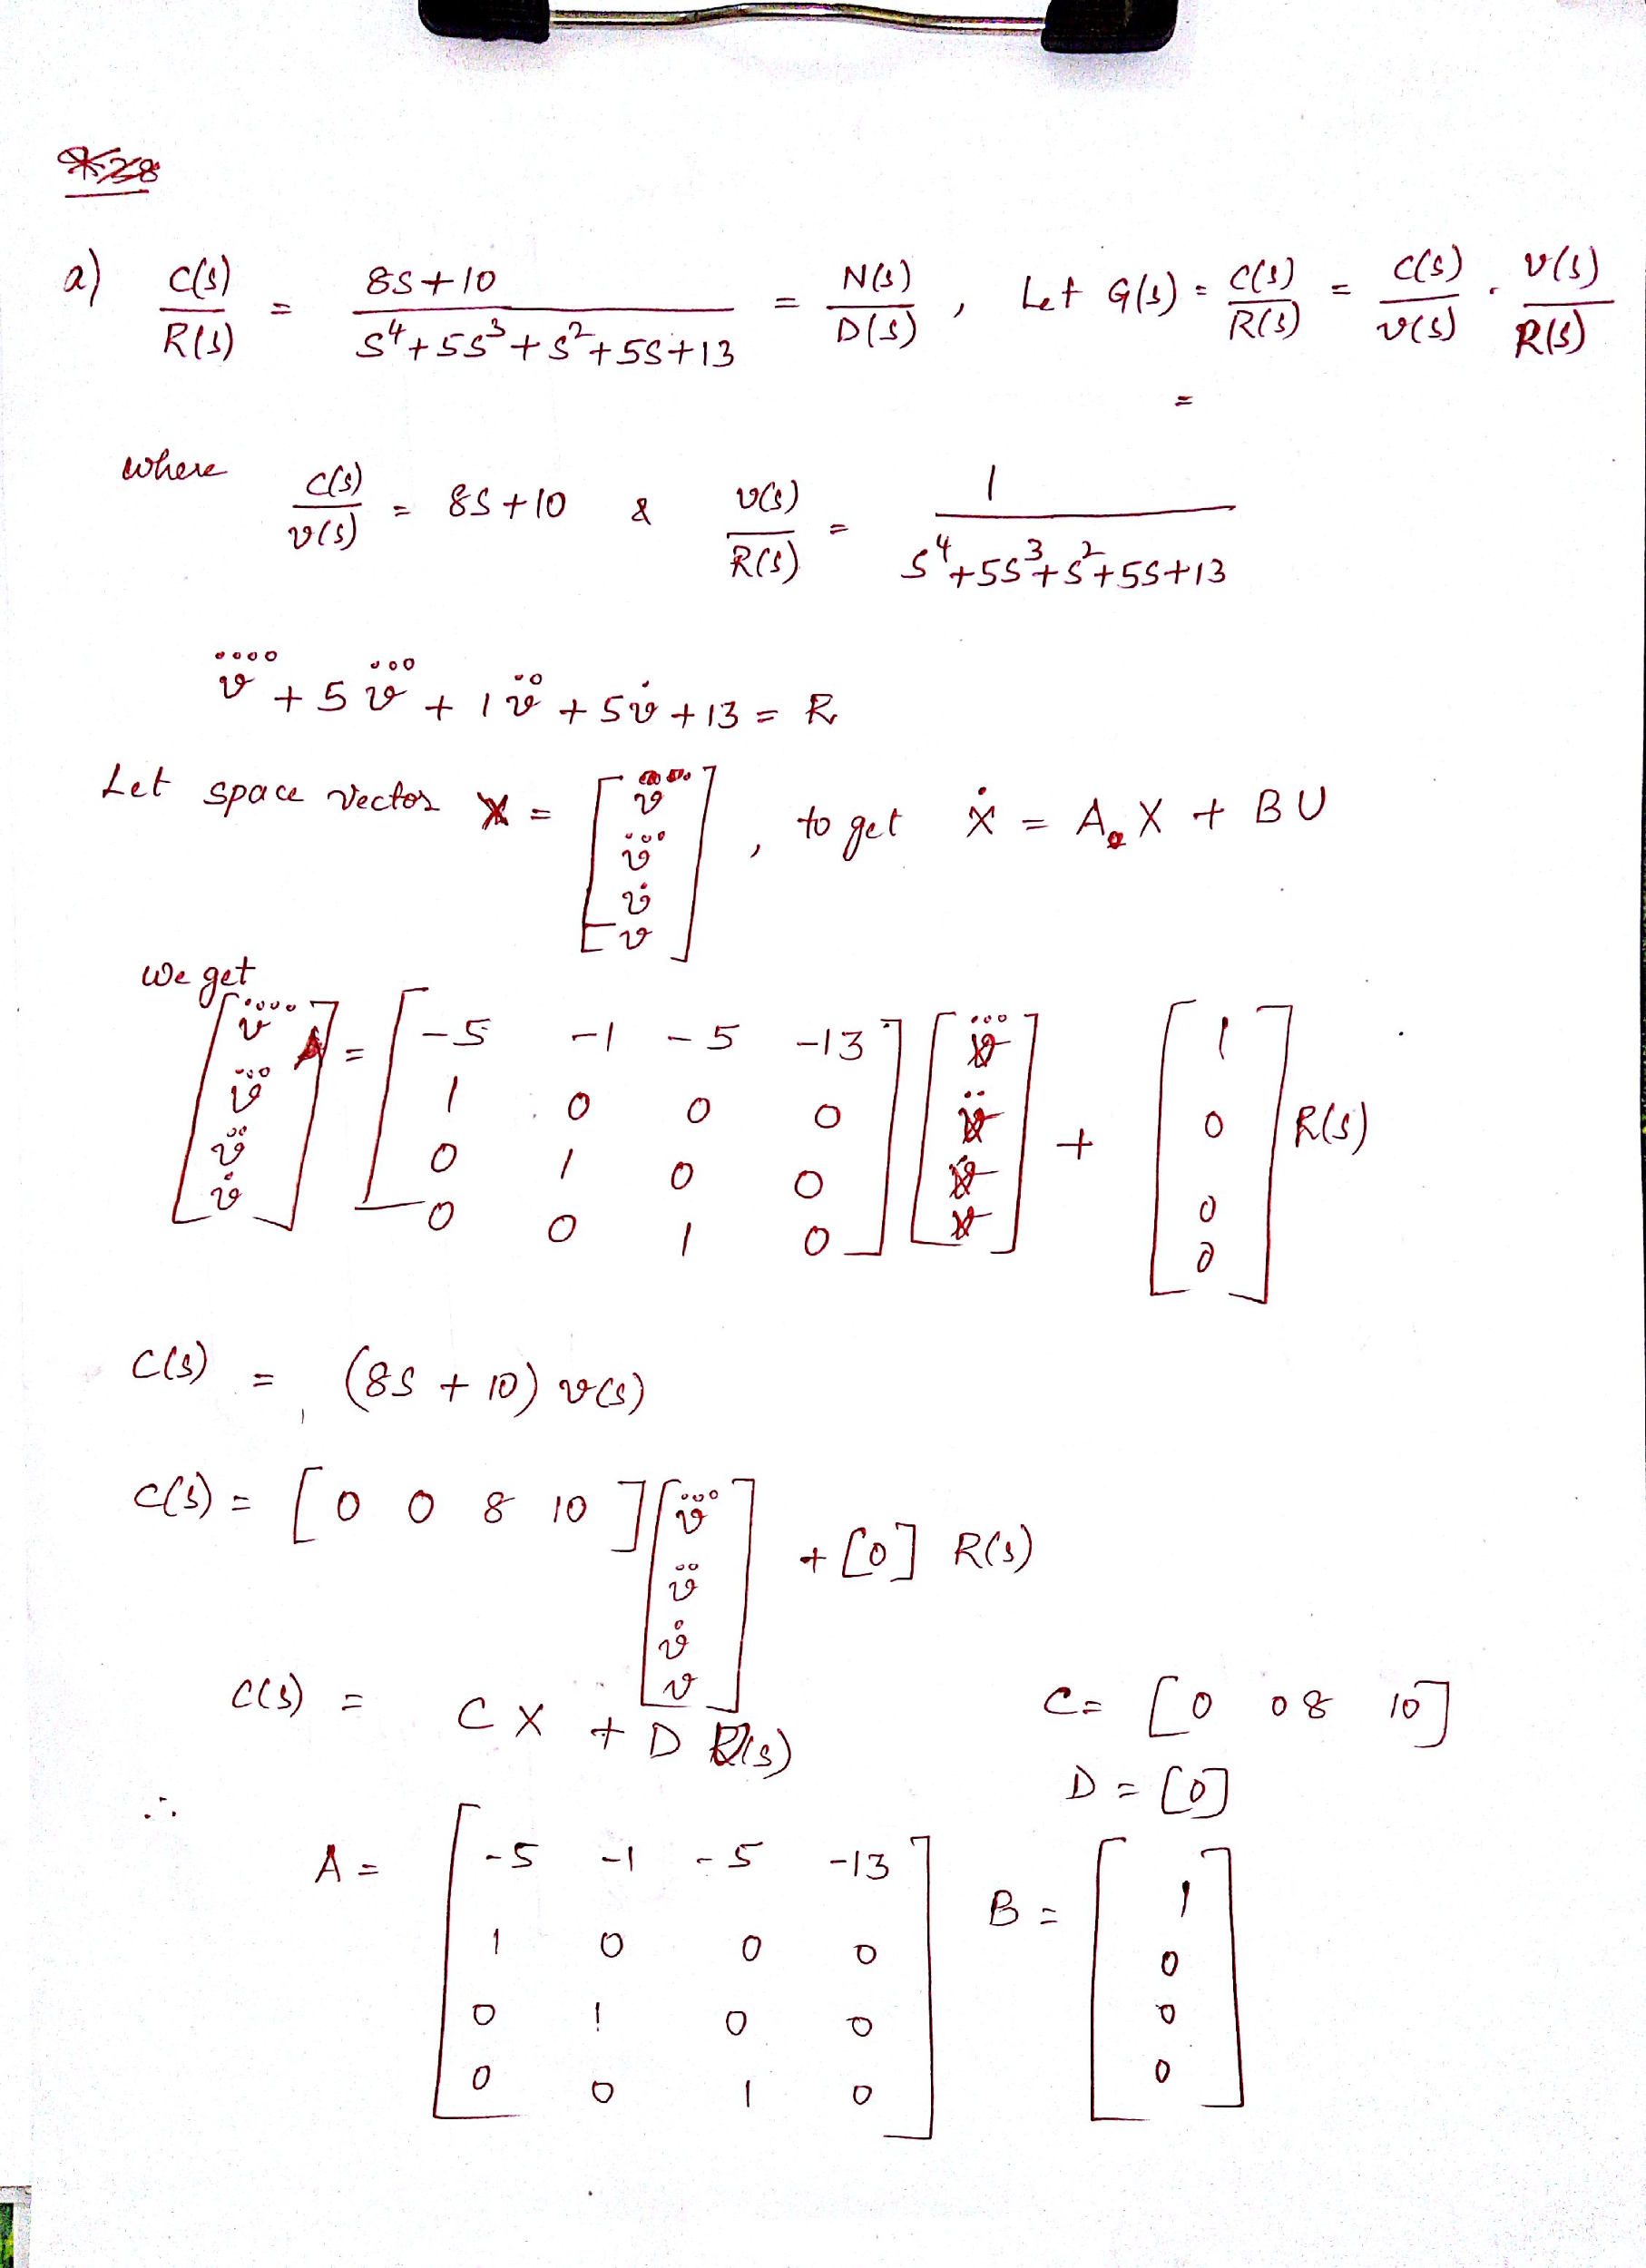 a) C(s)/R(s) = (8s+10)/(s⁴+5s³+s²+5s+13) = N(s)/D(s) , Let G(s) = C(s)/R(s) = C(s)/v(s) . v(s)/R(s)
=
where C(s)/v(s) = 8s+10 & v(s)/R(s) = 1/(s⁴+5s³+s²+5s+13)
v⃜ + 5v⃛ + 1v̈ + 5v̇ + 13 = R
Let space vector X = [v⃛ ; v̈ ; v̇ ; v] , to get ẋ = A X + BU
we get
[v⃜ ; v⃛ ; v̈ ; v̇] = [-5 -1 -5 -13 ; 1 0 0 0 ; 0 1 0 0 ; 0 0 1 0] [v⃛ ; v̈ ; v̇ ; v] + [1 ; 0 ; 0 ; 0] R(s)
C(s) = (8s + 10) v(s)
C(s) = [0 0 8 10] [v⃛ ; v̈ ; v̇ ; v] + [0] R(s)
C(s) = C X + D R(s)
C = [0 0 8 10]
D = [0]
∴ A = [-5 -1 -5 -13 ; 1 0 0 0 ; 0 1 0 0 ; 0 0 1 0] B = [1 ; 0 ; 0 ; 0]